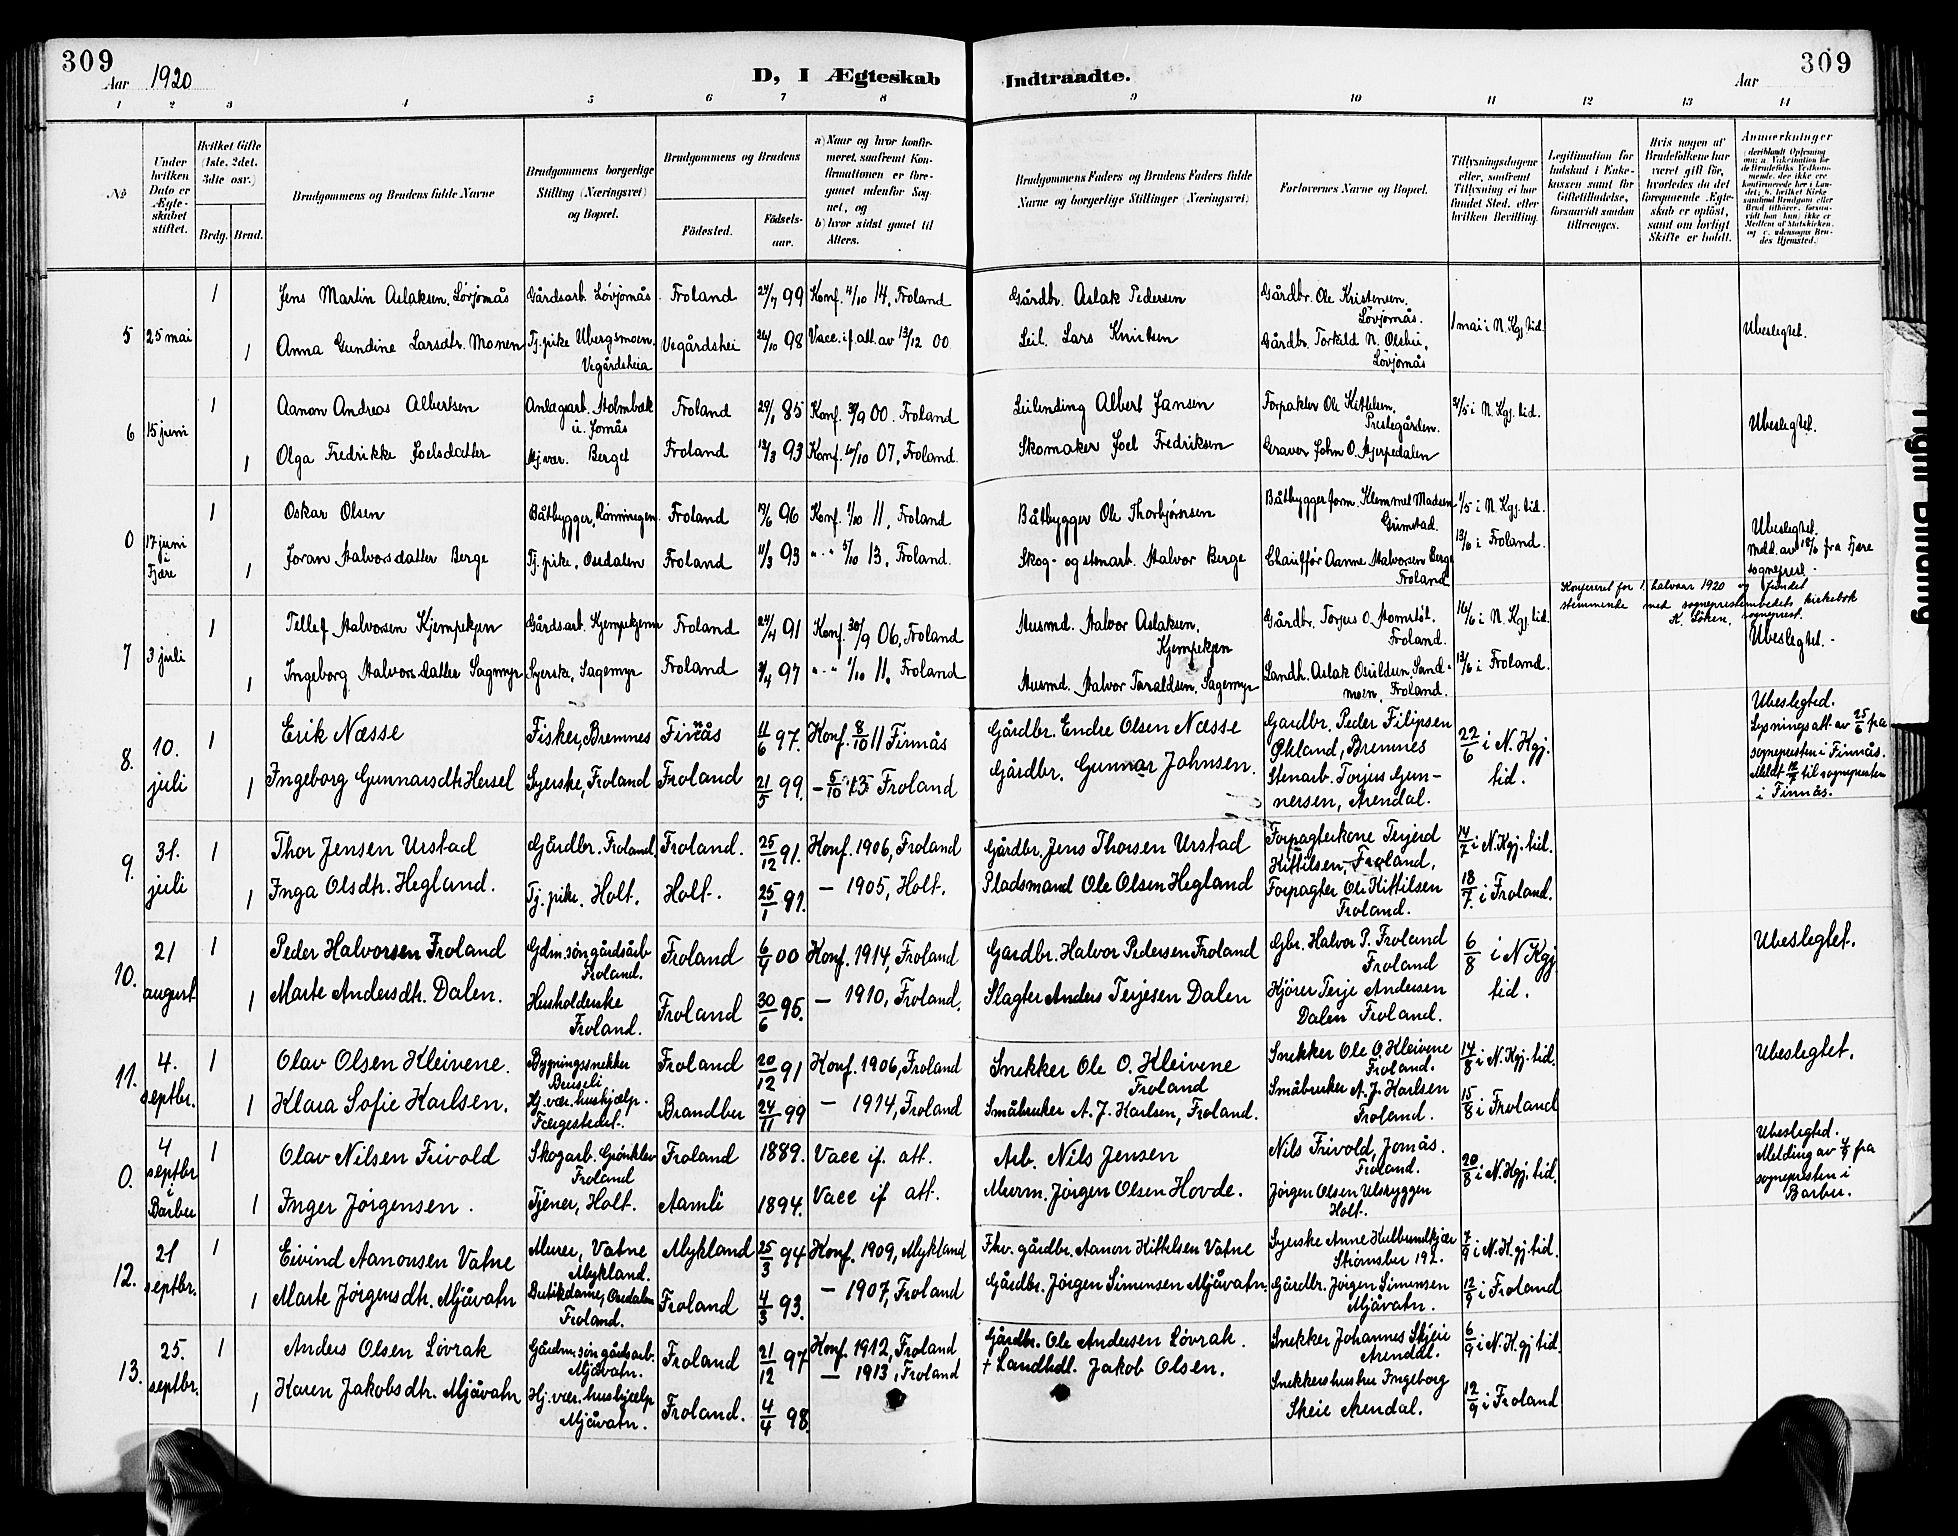 309
Aar 1920
D, I Ægteskab
Indtraadte.
Aar
309
1 2 3 4 5 6 7 8 9 10 11 12 13 14
No
Under hvilken Dato er Ægteskabet stiftet.
Hvilket Gifte (1ste, 2det, 3die osv.)
Brdg. Brud.
Brudgommens og Brudens fulde Navne
Brudgommens borgerlige Stilling (Næringsvei) og Bopæl.
Brudgommens og Brudens
Fødested.
Fødselsaar.
a) Naar og hvor konfirmeret, saafremt Konfirmationen er foregaaet udenfor Sognet, og
b) hvor sidst gaaet til Alters.
Brudgommens Faders og Brudens Faders fulde Navne og borgerlige Stillinger (Næringsvei)
Forlovernes Navne og Bopæl.
Tillysningsdagene eller, saafremt Tillysning ei har fundet Sted, efter hvilken Bevilling.
Legitimation for Indskud i Enkekassen samt for Giftetilladelse, forsaavidt saadan tiltrænges.
Hvis nogen af Brudefolkene har været gift før, hvorledes da det foregaaende Ægteskab er opløst, samt om lovligt Skifte er holdt.
Anmerkninger
5 25 mai
1 Jens Martin Aslaksen, Løvjomås Gårdsarb. Løvjomås Froland 24/7 99 Konf. 4/10 14, Froland Gårdbr. Aslak Pedersen Gårdbr. Ole Kristensen, Løvjomås. 1 mai i N. Kgj. tid. Ubeslegtet.
1 Anna Gundine Larsdtr. Monen Tj. pike Ubergsmoen. Vegårdsheia Vegårdshei 26/10 98 Vacc. if. att. av 13/12 00 Leil. Lars Knutsen Gårdbr. Torkild N. Olshei, Løvjomås
6 15 juni
1 Aanon Andreas Albertsen Anlagarb. Holmbæk u. Jomås Froland 29/1 85 Konf. 30/9 00. Froland Leilending Albert Jansen Forpakter Ole Kittilsen, Prestegården. 21/5 i N. Kgj. tid. Ubeslegtet.
1 Olga Fredrikke Joelsdatter Hj. vær. Berget Froland 12/3 93 Konf. 6/10 07, Froland. Skomaker Joel Fredriksen Graver John O. Hjerpedalen
0 17 juni i Fjære
1 Oskar Olsen Båtbygger, Rønningen Froland 19/6 96 Konf. 1/10 11, Froland Båtbygger Ole Thorbjørnsen Båtbygger form. Klemmet Madsen Grimstad. 1/5 i N. Kgj. tid. Ubeslegtet. Medd. av 18/6 fra Fjære sogneprest.
1 Joran Halvorsdatter Berge Tj. pike, Osedalen Froland 11/3 93 " - " 5/10 13, Froland. Skog- og stenarb. Halvor Berge Chauffør Aanne Halvorsen Berge Froland 13/6 i Froland.
Konfereret for 1. halvaar 1920 og fundet stemmende med sogneprestembedets kirkebok
A. Löken, sogneprest.
7 3 juli
1 Tellef Halvorsen Kjempekjen Gårdsarb. Kjempekjenn Froland 24/4 91 Konf. 30/9 06, Froland Husmd. Halvor Aslaksen, Kjempekjen Gårdbr. Torjus O. Homstøl, Froland. 16/6 i N. Kgj. tid. Ubeslegtet.
1 Ingeborg Halvorsdatter Sagmyr Syerske, Sagemyr Froland 21/4 97 " - " 1/10 11, Froland Husmd. Halvor Taraldsen, Sagemyr Landh. Aslak Osuldsen, Sandmoen, Froland. 13/6 i Froland.
8. 10. juli
1 Erik Næsse Fisker, Bremnes Finnås 11/6 97. Konf. 8/10 11 Finnås Gårdbr. Endre Olsen Næsse Gardbr. Peder Filipsen Økland, Bremnes 22/6 i N. Kgj. tid. Ubeslegted. Lysningsatt. av 25/6 fra sognepresten i Finnås. Meldt 12/7 til sognepresten i Finnås.
1 Ingeborg Gunnarsdtr. Hersel Syerske, Froland Froland 21/5 99. – 5/10 13 Froland Gårdbr. Gunnar Johnsen. Stenarb. Torjus Gunnersen, Arendal.
9. 31. juli
1 Thor Jensen Urstad Gårdbr. Froland. Froland. 25/12 91. Konf. 1906, Froland Gårdbr. Jens Thorsen Urstad Forpagterkone Terjerd Kittilsen, Froland. 14/7 i N. Kgj. tid.
1 Inga Olsdtr. Hegland. Tj. pike. Holt. Holt. 25/1 91. – 1905, Holt. Pladsmand Ole Olsen Hegland Forpagter Ole Kittilsen Froland. 18/7. i Froland.
10. 21 august
1 Peder Halvorsen Froland Gdm. søn gårdsarb Froland. Froland 6/4 00 Konf. 1914, Froland Gardbr. Halvor Pedersen Froland Gbr. Halvor P. Froland Froland 6/8 i N Kgj tid. Ubeslegtet.
1 Marte Andersdtr. Dalen. Husholderske Froland. Froland 30/6 95. – 1910, Froland. Slagter Anders Terjesen Dalen Kjører Terje Andersen Dalen Froland.
11. 4. septbr.
1 Olav Olsen Kleivene. Bygningssnekker Beuseli Froland 20/12 91 Konf. 1906, Froland Snekker Ole O. Kleivene Froland Snekker Ole O. Kleivene Froland. 14/8 i N. Kgj. tid. Ubeslegtet.
1 Klara Sofie Karlsen. Hj. vær. huskjælp. Færgestedet. Brandbu 24/11 99 – 1914, Froland Småbruker A. J. Karlsen, Froland. Småbruker A. J. Karlsen Froland. 15/8 i Froland
0. 4 septbr i Barbu
1 Olav Nilsen Frivold Skogarb. Grönklev Froland Froland 1889. Vacc if. att. Arb. Nils Jensen Nils Frivold, Jomås. Froland. 20/8 i N. Kgj. tid. Ubeslegted. Melding av 4/9 fra sognepresten i Barbu.
1 Inger Jørgensen. Tjener, Holt. Aamli 1894. Vacc if att. Murm. Jørgen Olsen Hovde. Jørgen Olsen Ulskyggen Holt.
12. 21 septbr.
1 Eivind Aanonsen Vatne Murer, Vatne Mykland. Mykland 25/3 94 Konf. 1909, Mykland Fhv. gårdbr. Aanon Kittelsen Vatne Syerske Anne Kulbrundkjær Strømsbu 192. 7/9 i N. K. gj. tid.
1 Marte Jørgensdtr. Mjåvatn Butikdame, Osedalen Froland. Froland 4/3 93. – 1907, Froland Gårdbr. Jørgen Simensen Mjåvatn. Gårdbr. Jørgen Simensen Mjåvatn. 12/9 i Froland
13. 25. septbr.
1 Anders Olsen Løvrak Gårdm. søn gårdsarb. Mjåvatn. Froland 21/12 97 Konf. 1912, Froland Gårdbr. Ole Andersen Løvrak. Snekker Johannes Skjeie Arendal. 6/9 i N. K. gj tid.
1 Karen Jakobsdtr. Mjåvatn Hj. vær. huskjælp Mjåvatn. Froland. 4/4 98. – 1913, Froland + Landhdl. Jakob Olsen. Snekkers hustru Ingeborg Skeie Arendal. 12/9 i Froland